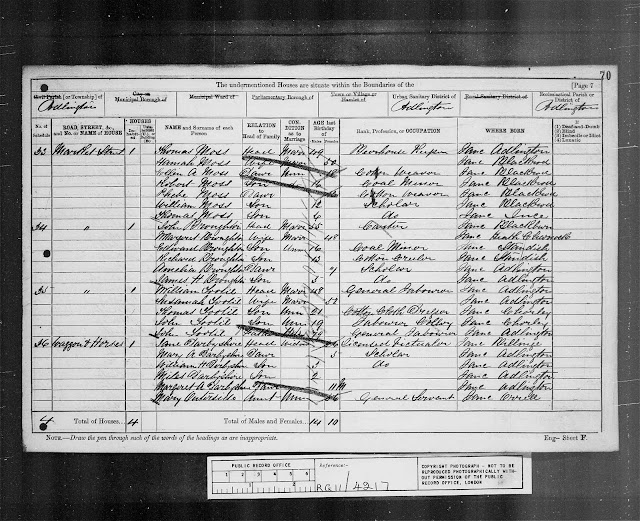 70
The undermentioned Houses are situate within the Boundaries of the
Page 7
Civil Parish [or Township] of
Adlington
City or
Municipal Borough of
Municipal Ward of
Parliamentary Borough of
Town or Village or
Hamlet of
Urban Sanitary District of
Adlington
Rural Sanitary District of
Ecclesiastical Parish or
District of
Adlington
No. of
Schedule
ROAD, STREET, &c.,
and No. or NAME of HOUSE
HOUSES
NAME and Surname of each
Person
RELATION
to
Head of Family
CON-
DITION
as to
Marriage
AGE last
Birthday
of
Males
Females
Rank, Profession, or OCCUPATION
WHERE BORN
If
(1) Deaf-and-Dumb
(2) Blind
(3) Imbecile or Idiot
(4) Lunatic
33 Market Street 1 Thomas Moss Head Mar Beerhouse Keeper Lanc Adlington
Hannah Moss Wife Mar 50 Lanc Blackrod
Ellen A Moss Daur Unm Cotton Weaver Lanc Blackrod
Robert Moss Son 16 Coal Miner Lanc Blackrod
Moss Daur Cotton Weaver Lanc Blackrod
William Moss Son 12 Scholar Lanc Blackrod
Thomas Moss Son 6 Do Lanc Ince
34 " 1 John Broughton Head Mar 55 Carter Lanc Blackburn
Margaret Broughton Wife Mar 48 Lanc Heath Charnock
Edward Broughton Son Unm 16 Coal Miner Lanc Standish
Richard Broughton Son 13 Lanc Standish
Amelia Broughton Daur 7 Scholar Lanc Adlington
James H Broughton Son 3 Do Lanc Adlington
35 " 1 William Tootil Head Mar 48 General Labourer Lanc Adlington
Susannah Tootil Wife Mar 52 Lanc Adlington
Thomas Tootil Son Unm 21 Lanc Chorley
John Tootil Son Unm 19 Labourer Lanc Chorley
John Tootil General Labourer Lanc Adlington
36 Waggon & Horses 1 Jane Darbyshire Head Widow Licensed Victualler Lanc Billinge
Mary A Darbyshire Daur 5 Scholar Lanc Adlington
William H Darbyshire Son 3 Do Lanc Adlington
Miles Darbyshire Son 2 Lanc Adlington
Margaret A Darbyshire Daur Lanc Adlington
Mary Aunt Unm General Servant Lanc Orrell
4 Total of Houses... 4 Total of Males and Females... 14 10
NOTE.—Draw the pen through such of the words of the headings as are inappropriate.
Eng— Sheet F.
PUBLIC RECORD OFFICE
1 2 3 4 5 6
Reference:-
RG 11 / 4217
COPYRIGHT PHOTOGRAPH - NOT TO BE
REPRODUCED PHOTOGRAPHICALLY WITH-
OUT PERMISSION OF THE PUBLIC
RECORD OFFICE, LONDON